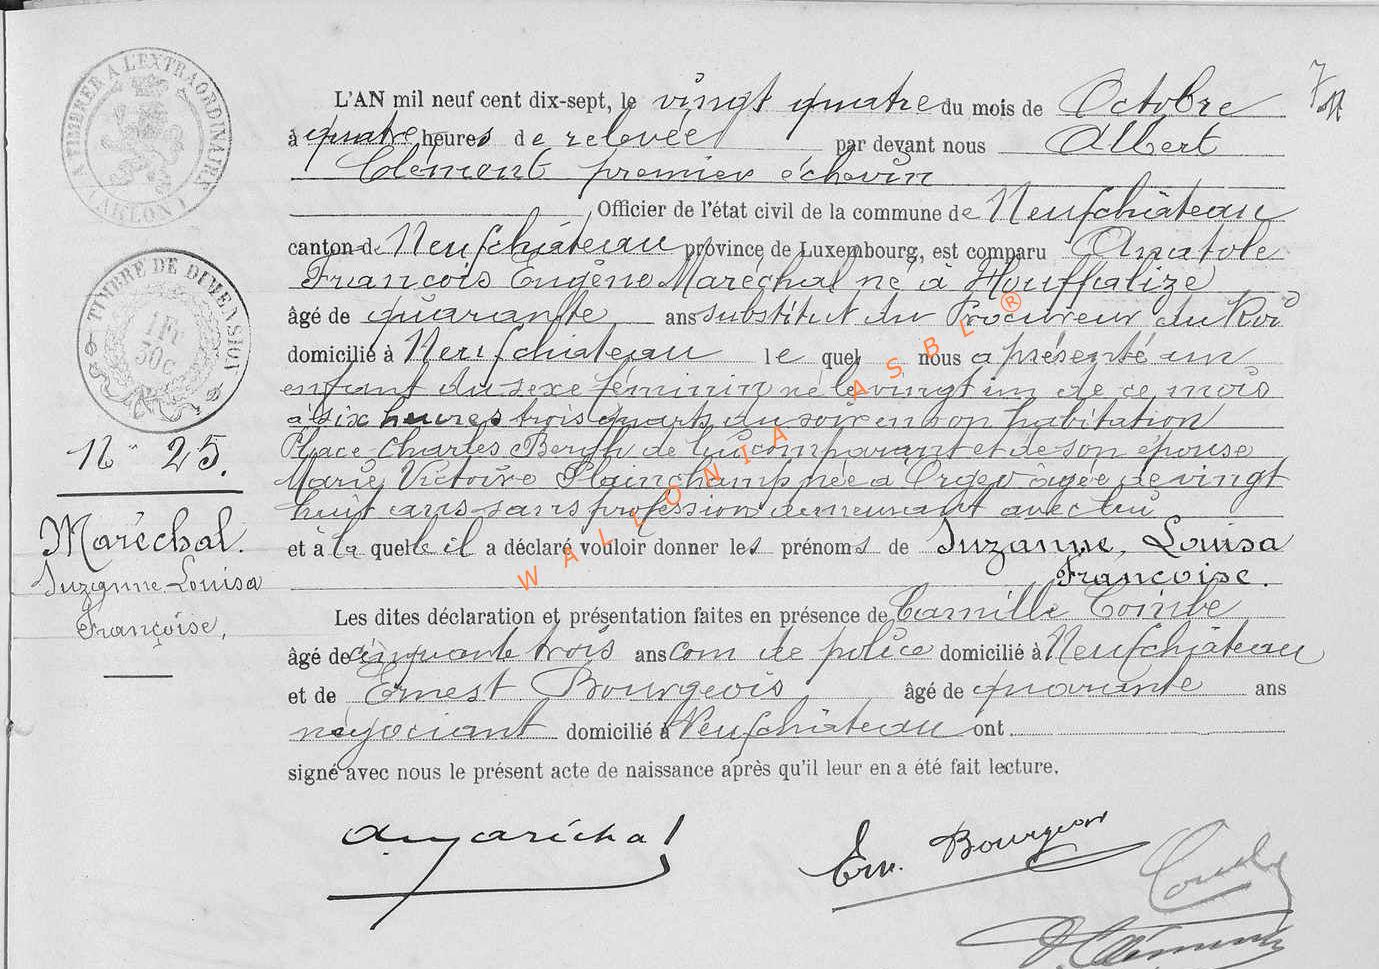 A TIMBRER A L'EXTRAORDINAIRE
(ARLON)
TIMBRE DE DIMENSION
1Fr
50c
7
L'AN mil neuf cent dix-sept, le vingt quatre du mois de Octobre
à quatre heures de relevée par devant nous Albert
Clément premier échevin
Officier de l'état civil de la commune de Neufchâteau
canton de Neufchâteau province de Luxembourg, est comparu Anatole
François Eugène Maréchal né à Houffalize
âgé de quarante ans substitut du Procureur du Roi
domicilié à Neufchateau le quel nous a présenté un
enfant du sexe féminin né le vingt un de ce mois
à six heures trois quarts du soir en son habitation
Place Charles Bergh de lui comparant et de son épouse
Marie Victoire Plainchamp née à Orgeo âgée de vingt
huit ans sans profession demeurant avec lui
et à la quelle il a déclaré vouloir donner les prénoms de Suzanne, Louisa
Françoise.
Les dites déclaration et présentation faites en présence de Camille Combe
âgé de cinquante trois ans com de police domicilié à Neufchâteau
et de Ernest Bourgeois âgé de quarante ans
négociant domicilié à Neufchâteau ont
signé avec nous le présent acte de naissance après qu'il leur en a été fait lecture.
N° 25.
Maréchal.
Suzanne Louisa
Françoise,
AMaréchal
Ern. Bourgeois
Combe
A. Clément
WALLONIA ASBL ®